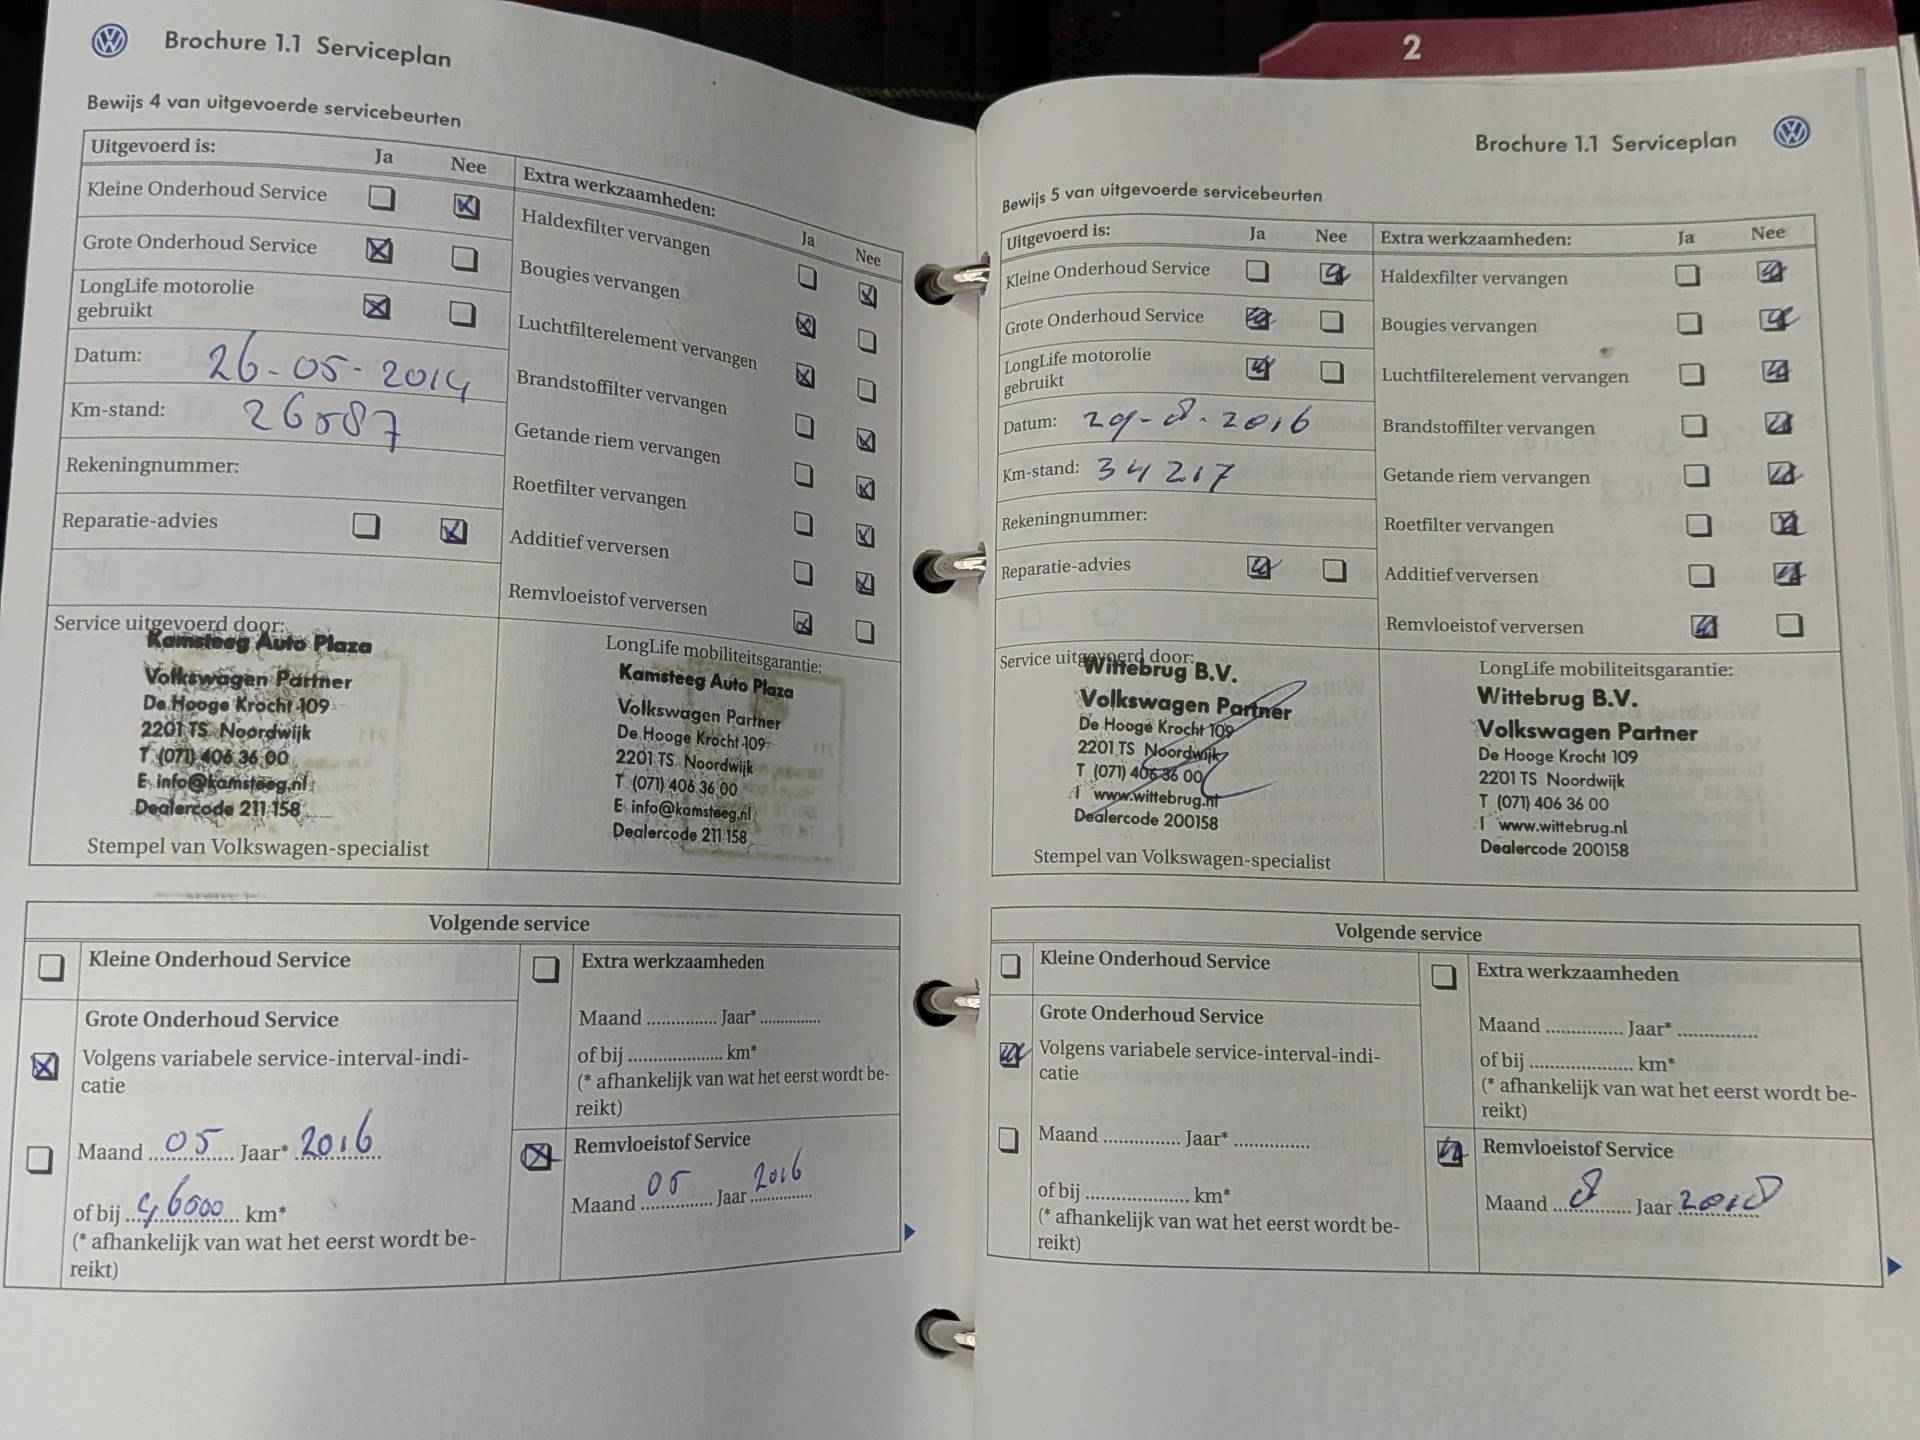 Brochure 1.1 Serviceplan
Bewijs 4 van uitgevoerde servicebeurten
Uitgevoerd is:
Ja
Nee
Kleine Onderhoud Service
Grote Onderhoud Service
LongLife motorolie
gebruikt
Datum: 26-05-2014
Km-stand: 26087
Rekeningnummer:
Reparatie-advies
Extra werkzaamheden:
Ja
Nee
Haldexfilter vervangen
Bougies vervangen
Luchtfilterelement vervangen
Brandstoffilter vervangen
Getande riem vervangen
Roetfilter vervangen
Additief verversen
Remvloeistof verversen
Service uitgevoerd door:
Kamsteeg Auto Plaza
Volkswagen Partner
De Hooge Krocht 109
2201 TS Noordwijk
T (071) 406 36 00
E info@kamsteeg.nl
Dealercode 211.158
Stempel van Volkswagen-specialist
LongLife mobiliteitsgarantie:
Kamsteeg Auto Plaza
Volkswagen Partner
De Hooge Krocht 109
2201 TS Noordwijk
T (071) 406 36 00
E info@kamsteeg.nl
Dealercode 211.158
Volgende service
Kleine Onderhoud Service
Grote Onderhoud Service
Volgens variabele service-interval-indi-
catie
Maand 05 Jaar* 2016
of bij 46000 km*
(* afhankelijk van wat het eerst wordt be-
reikt)
Extra werkzaamheden
Maand ............... Jaar* ...............
of bij .................... km*
(* afhankelijk van wat het eerst wordt be-
reikt)
Remvloeistof Service
Maand 05 Jaar 2016
2
Brochure 1.1 Serviceplan
Bewijs 5 van uitgevoerde servicebeurten
Uitgevoerd is:
Ja
Nee
Kleine Onderhoud Service
Grote Onderhoud Service
LongLife motorolie
gebruikt
Datum: 29-8-2016
Km-stand: 34217
Rekeningnummer:
Reparatie-advies
Extra werkzaamheden:
Ja
Nee
Haldexfilter vervangen
Bougies vervangen
Luchtfilterelement vervangen
Brandstoffilter vervangen
Getande riem vervangen
Roetfilter vervangen
Additief verversen
Remvloeistof verversen
Service uitgevoerd door:
Wittebrug B.V.
Volkswagen Partner
De Hooge Krocht 109
2201 TS Noordwijk
T (071) 406 36 00
I www.wittebrug.nl
Dealercode 200158
Stempel van Volkswagen-specialist
LongLife mobiliteitsgarantie:
Wittebrug B.V.
Volkswagen Partner
De Hooge Krocht 109
2201 TS Noordwijk
T (071) 406 36 00
I www.wittebrug.nl
Dealercode 200158
Volgende service
Kleine Onderhoud Service
Grote Onderhoud Service
Volgens variabele service-interval-indi-
catie
Maand ............... Jaar* ...............
of bij .................... km*
(* afhankelijk van wat het eerst wordt be-
reikt)
Extra werkzaamheden
Maand ............... Jaar* ...............
of bij .................... km*
(* afhankelijk van wat het eerst wordt be-
reikt)
Remvloeistof Service
Maand 8 Jaar 2018